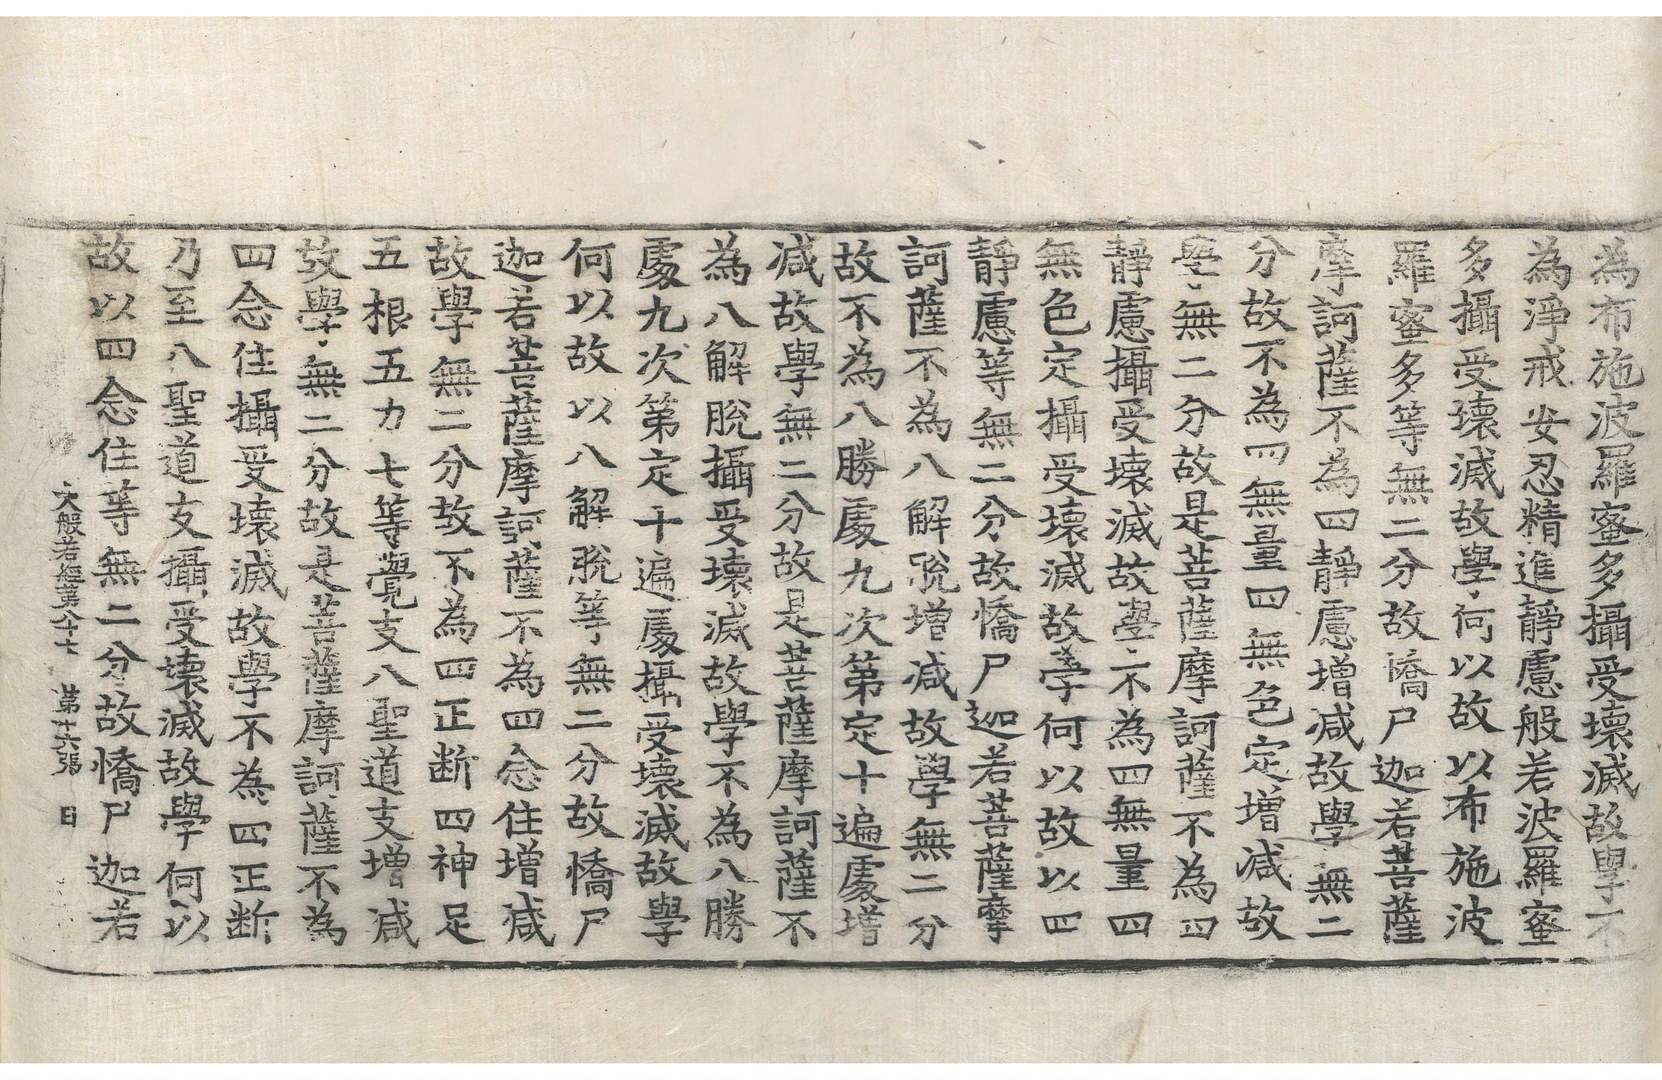 為布施波羅蜜多攝受壞滅故學不
為淨戒安忍精進靜慮般若波羅蜜
多攝受壞滅故學何以故以布施波
羅蜜多等無二分故憍尸迦若菩薩
摩訶薩不為四靜慮增減故學無二
分故不為四無量四無色定增減故
學無二分故是菩薩摩訶薩不為四
靜慮攝受壞滅故學不為四無量四
無色定攝受壞滅故学何以故以四
靜慮等無二分故憍尸迦若菩薩摩
訶薩不為八解脫增减故學無二分
故不為八勝處九次第定十遍處增
减故學無二分故是菩薩摩訶薩不
為八解脫攝受壞滅故學不為八勝
處九次第定十遍處攝受壞滅故學
何以故以八解脫等無二分故憍尸
迦若菩薩摩訶薩不為四念住增减
故學無二分故不為四正断四神足
五根五力七等覺支八聖道支增减
故學無二分故是菩薩摩訶薩不為
四念住攝受壞滅故學不為四正断
乃至八聖道支攝受壞滅故學何以
故以四念住等無二分故憍尸迦若
大般若經第八十七 第十六張 日